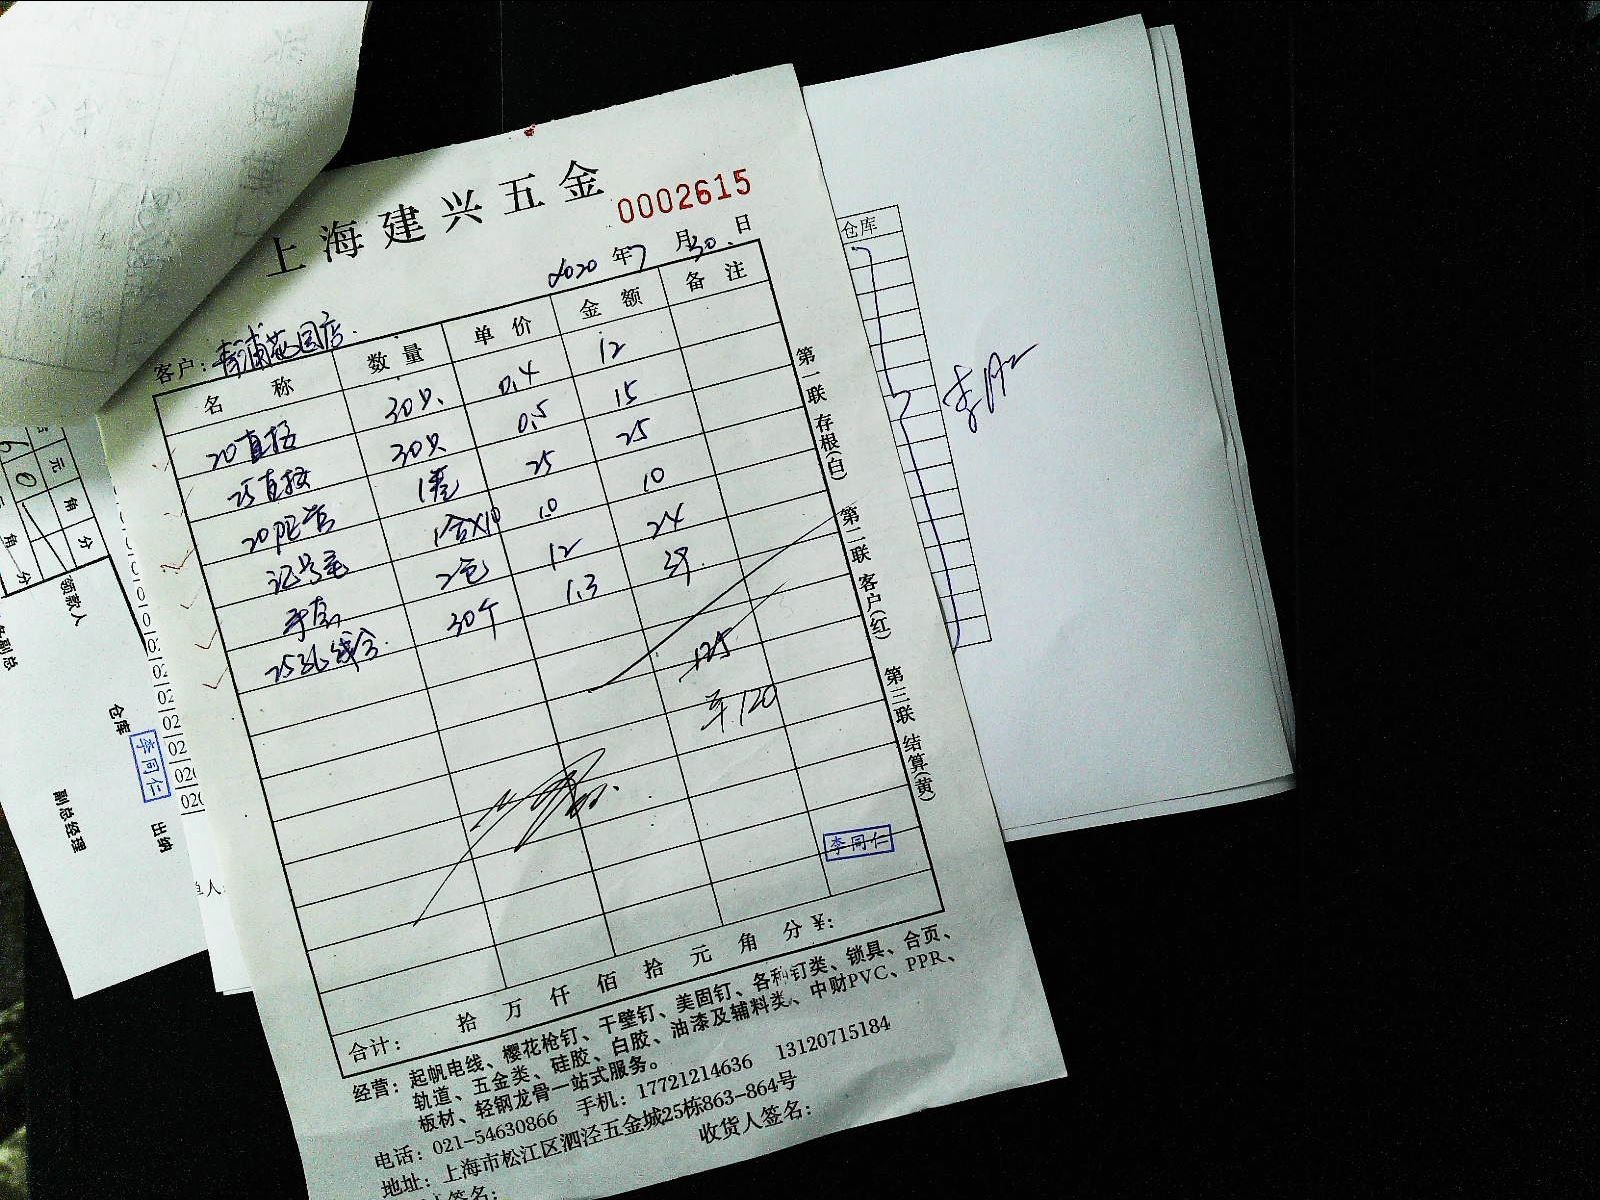 上海建兴五金
0002615
2020年7月30日
客户：青浦花园店
名称 数量 单价 金额 备注
20直接 30只 0.4 12
25直接 30只 0.5 15
20阻管 1卷 25 25
记号笔 1合×10 10 10
手套 2包 12 24
25孔线合 30个 1.3 39
125
平120
李同仁
合计： 拾 万 仟 佰 拾 元 角 分 ¥：
第一联 存根(白) 第二联 客户(红) 第三联 结算(黄)
经营：起帆电线、樱花枪钉、干壁钉、美固钉、各种钉类、锁具、合页、
轨道、五金类、硅胶、白胶、油漆及辅料类、中财PVC、PPR、
板材、轻钢龙骨一站式服务。
电话：021-54630866 手机：17721214636 13120715184
地址：上海市松江区泗泾五金城25栋863-864号
收货人签名：
签名：
仓库
元 角 分
领款人
仓库
李同仁
出纳
副总经理